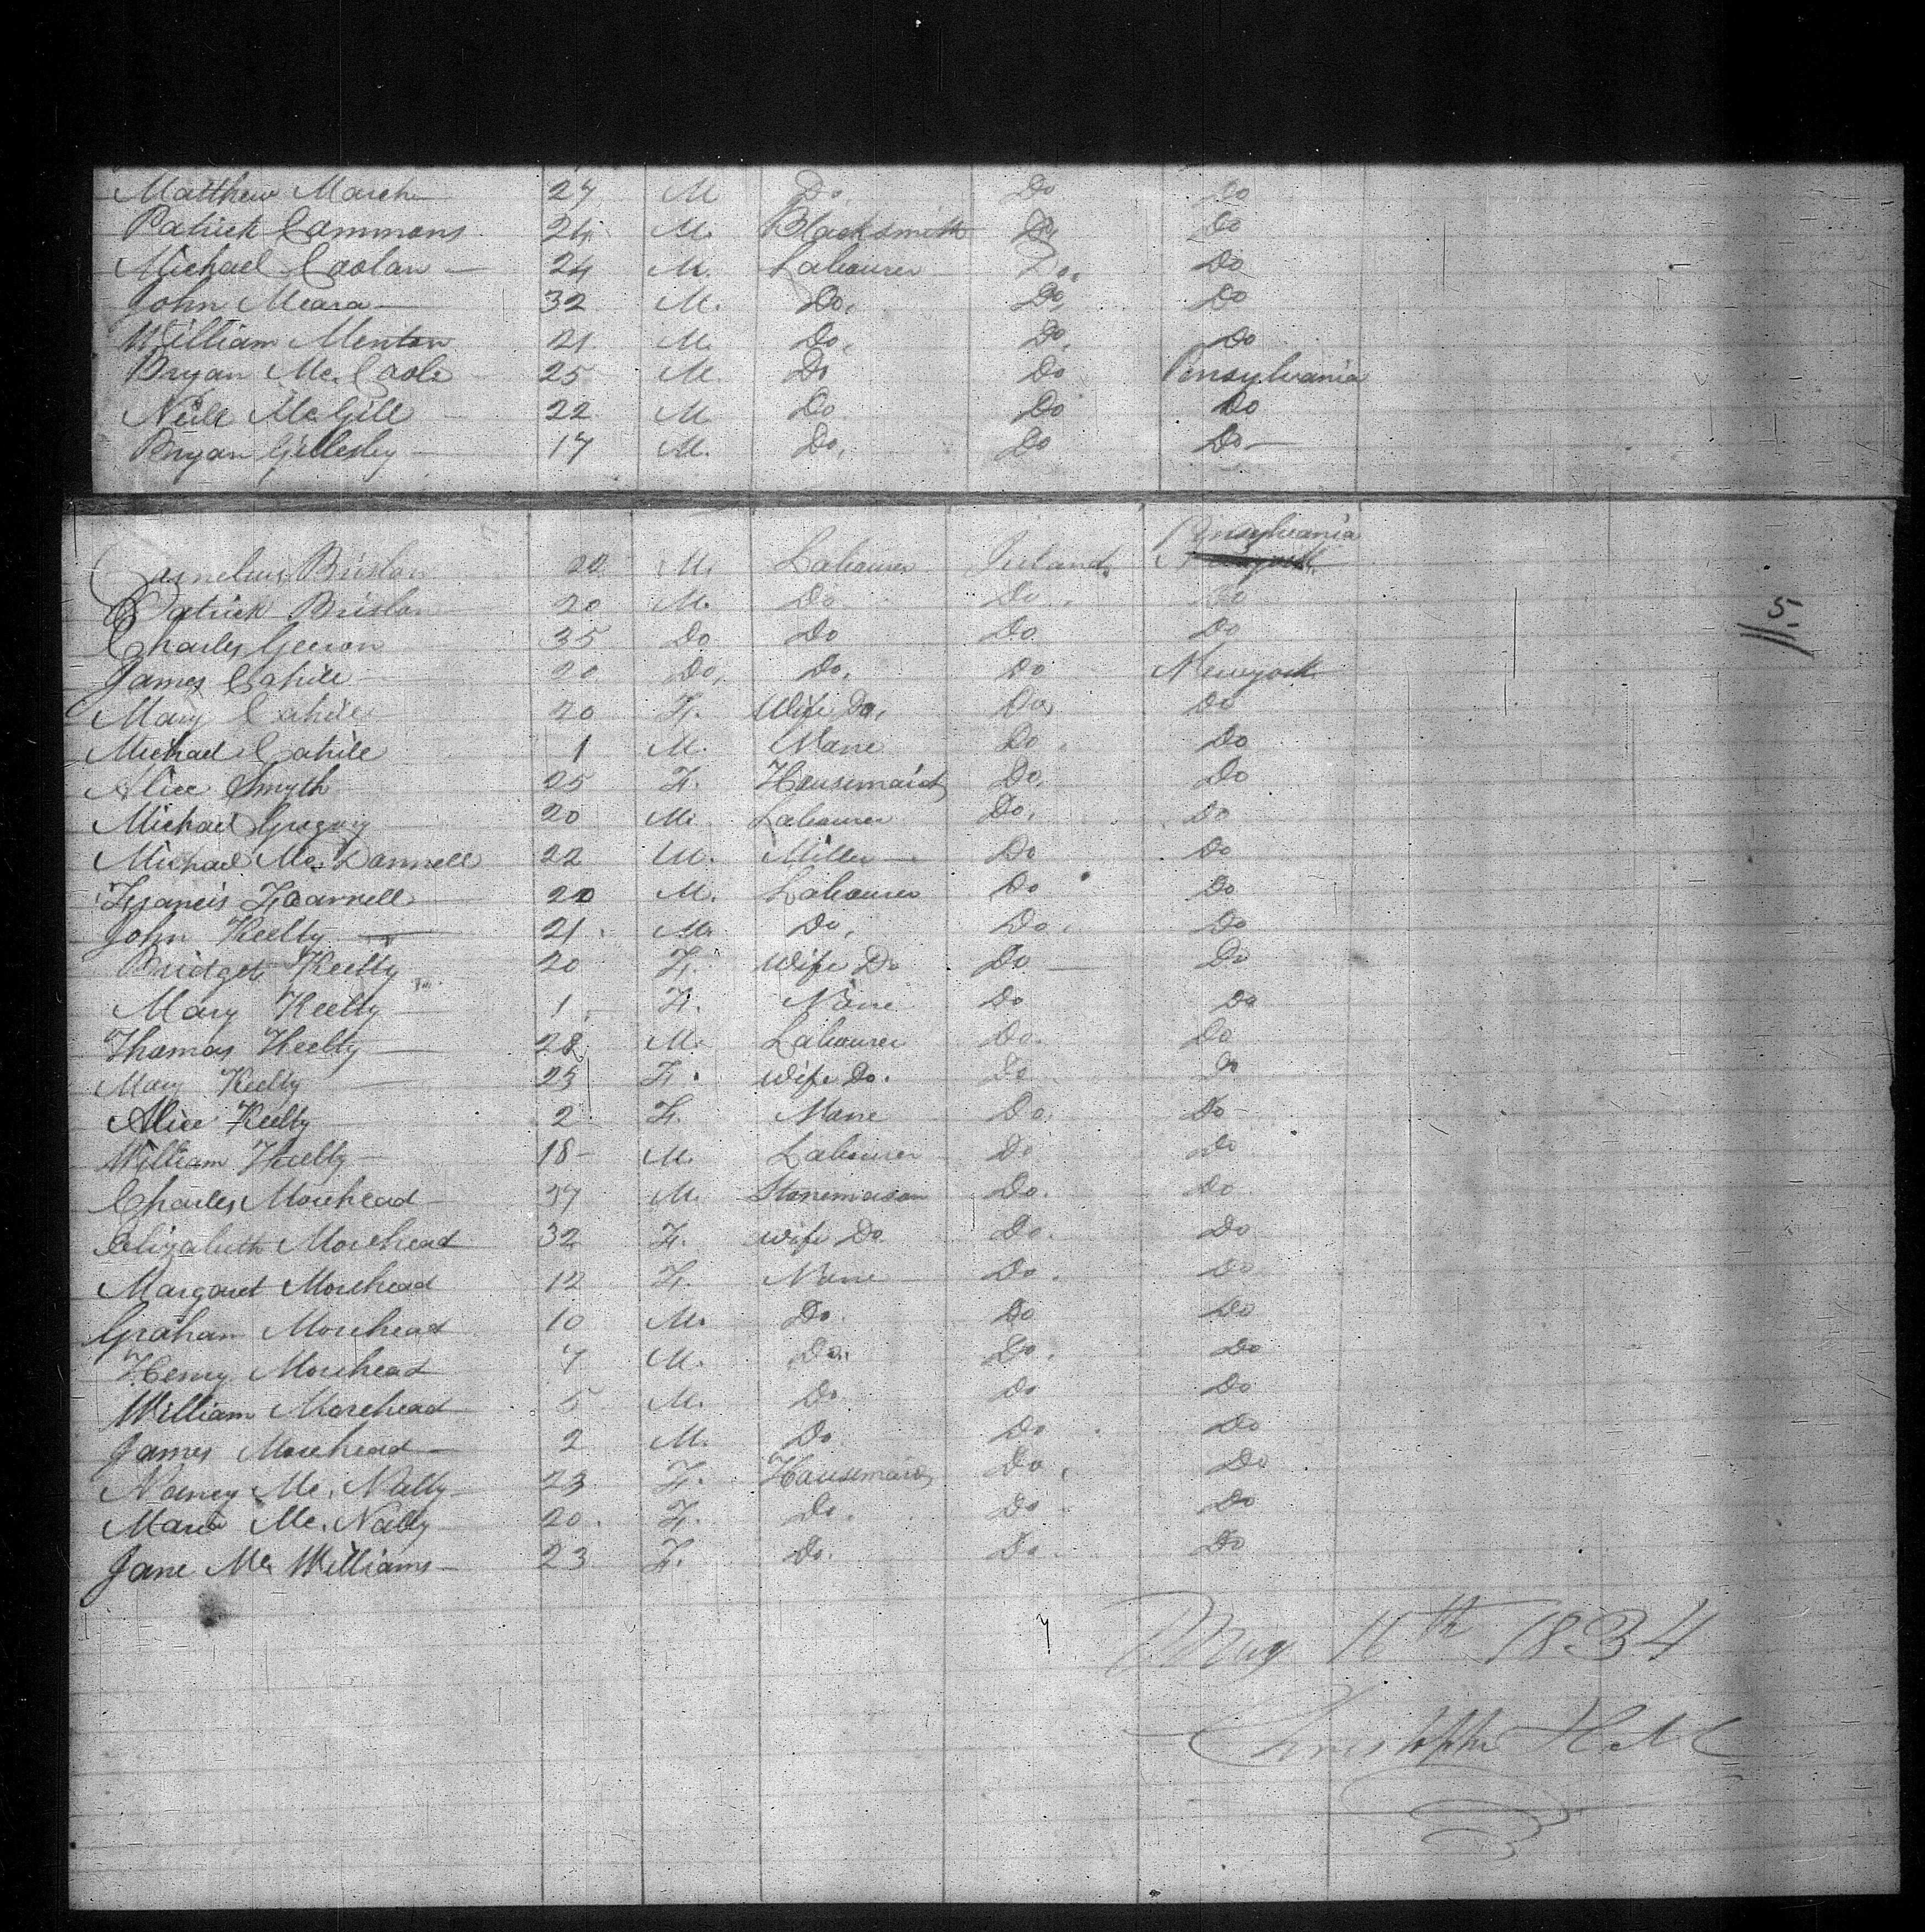 Matthew March 27 M Do. Do Do
Patrick Cammons 24 M. Blacksmith Do Do
Michael Caolan 24 M. Labourer Do. Do
John Meara 32 M. Do. Do. Do
William Menton 21 M. Do. Do. Do
Bryan Mc. Coole 25 M. Do Do Pensylvania
Neill McGill 22 M Do Do Do
Bryan Gillesby 17 M. Do. Do Do
Pensylvania
Cornelius Brislan 20 M. Labourer Ireland Newyork
Patrick Brislan 20 M. Do Do Do
Charles 35 Do Do Do Do
James Cahill 20 Do. Do. Do Newyork
Mary Cahill 20 F. Wife Do. Do Do
Michael Cahill 1 M. None Do. Do
Alice Smyth 25 F. Housemaid Do. Do
Michael Gregory 20 M. Labourer Do. Do
Michael Mc. Donnell 22 M. Miller Do Do
Francis 20 M. Labourer Do Do
John Keelty 21 M. Do. Do. Do
Bridget Keelty 20 F. Wife Do Do Do
Mary Keelty 1 F. None Do Do
Thomas Keelty 28 M. Labourer Do. Do
Mary Keelty 25 F. Wife Do. Do Do
Alice Keelty 2 F. None Do. Do
William Keelty 18 M. Labourer Do Do
Charles Morehead 37 M. Stonemason Do. Do
Elizabeth Morehead 32 F. Wife Do Do. Do
Margaret Morehead 12 F. None Do. Do
Graham Morehead 10 M. Do. Do Do
Henry Morehead 7 M. Do. Do. Do
William Morehead 5 M. Do Do Do
James Morehead 2 M. Do Do Do
Nancy Mc. Nally 23 F. Housemaid Do. Do
Maria Mc. Nally 20. F. Do. Do Do
Jane Mc Williams 23 F. Do. Do. Do
5.
May 16th 1834
Christopher Hall